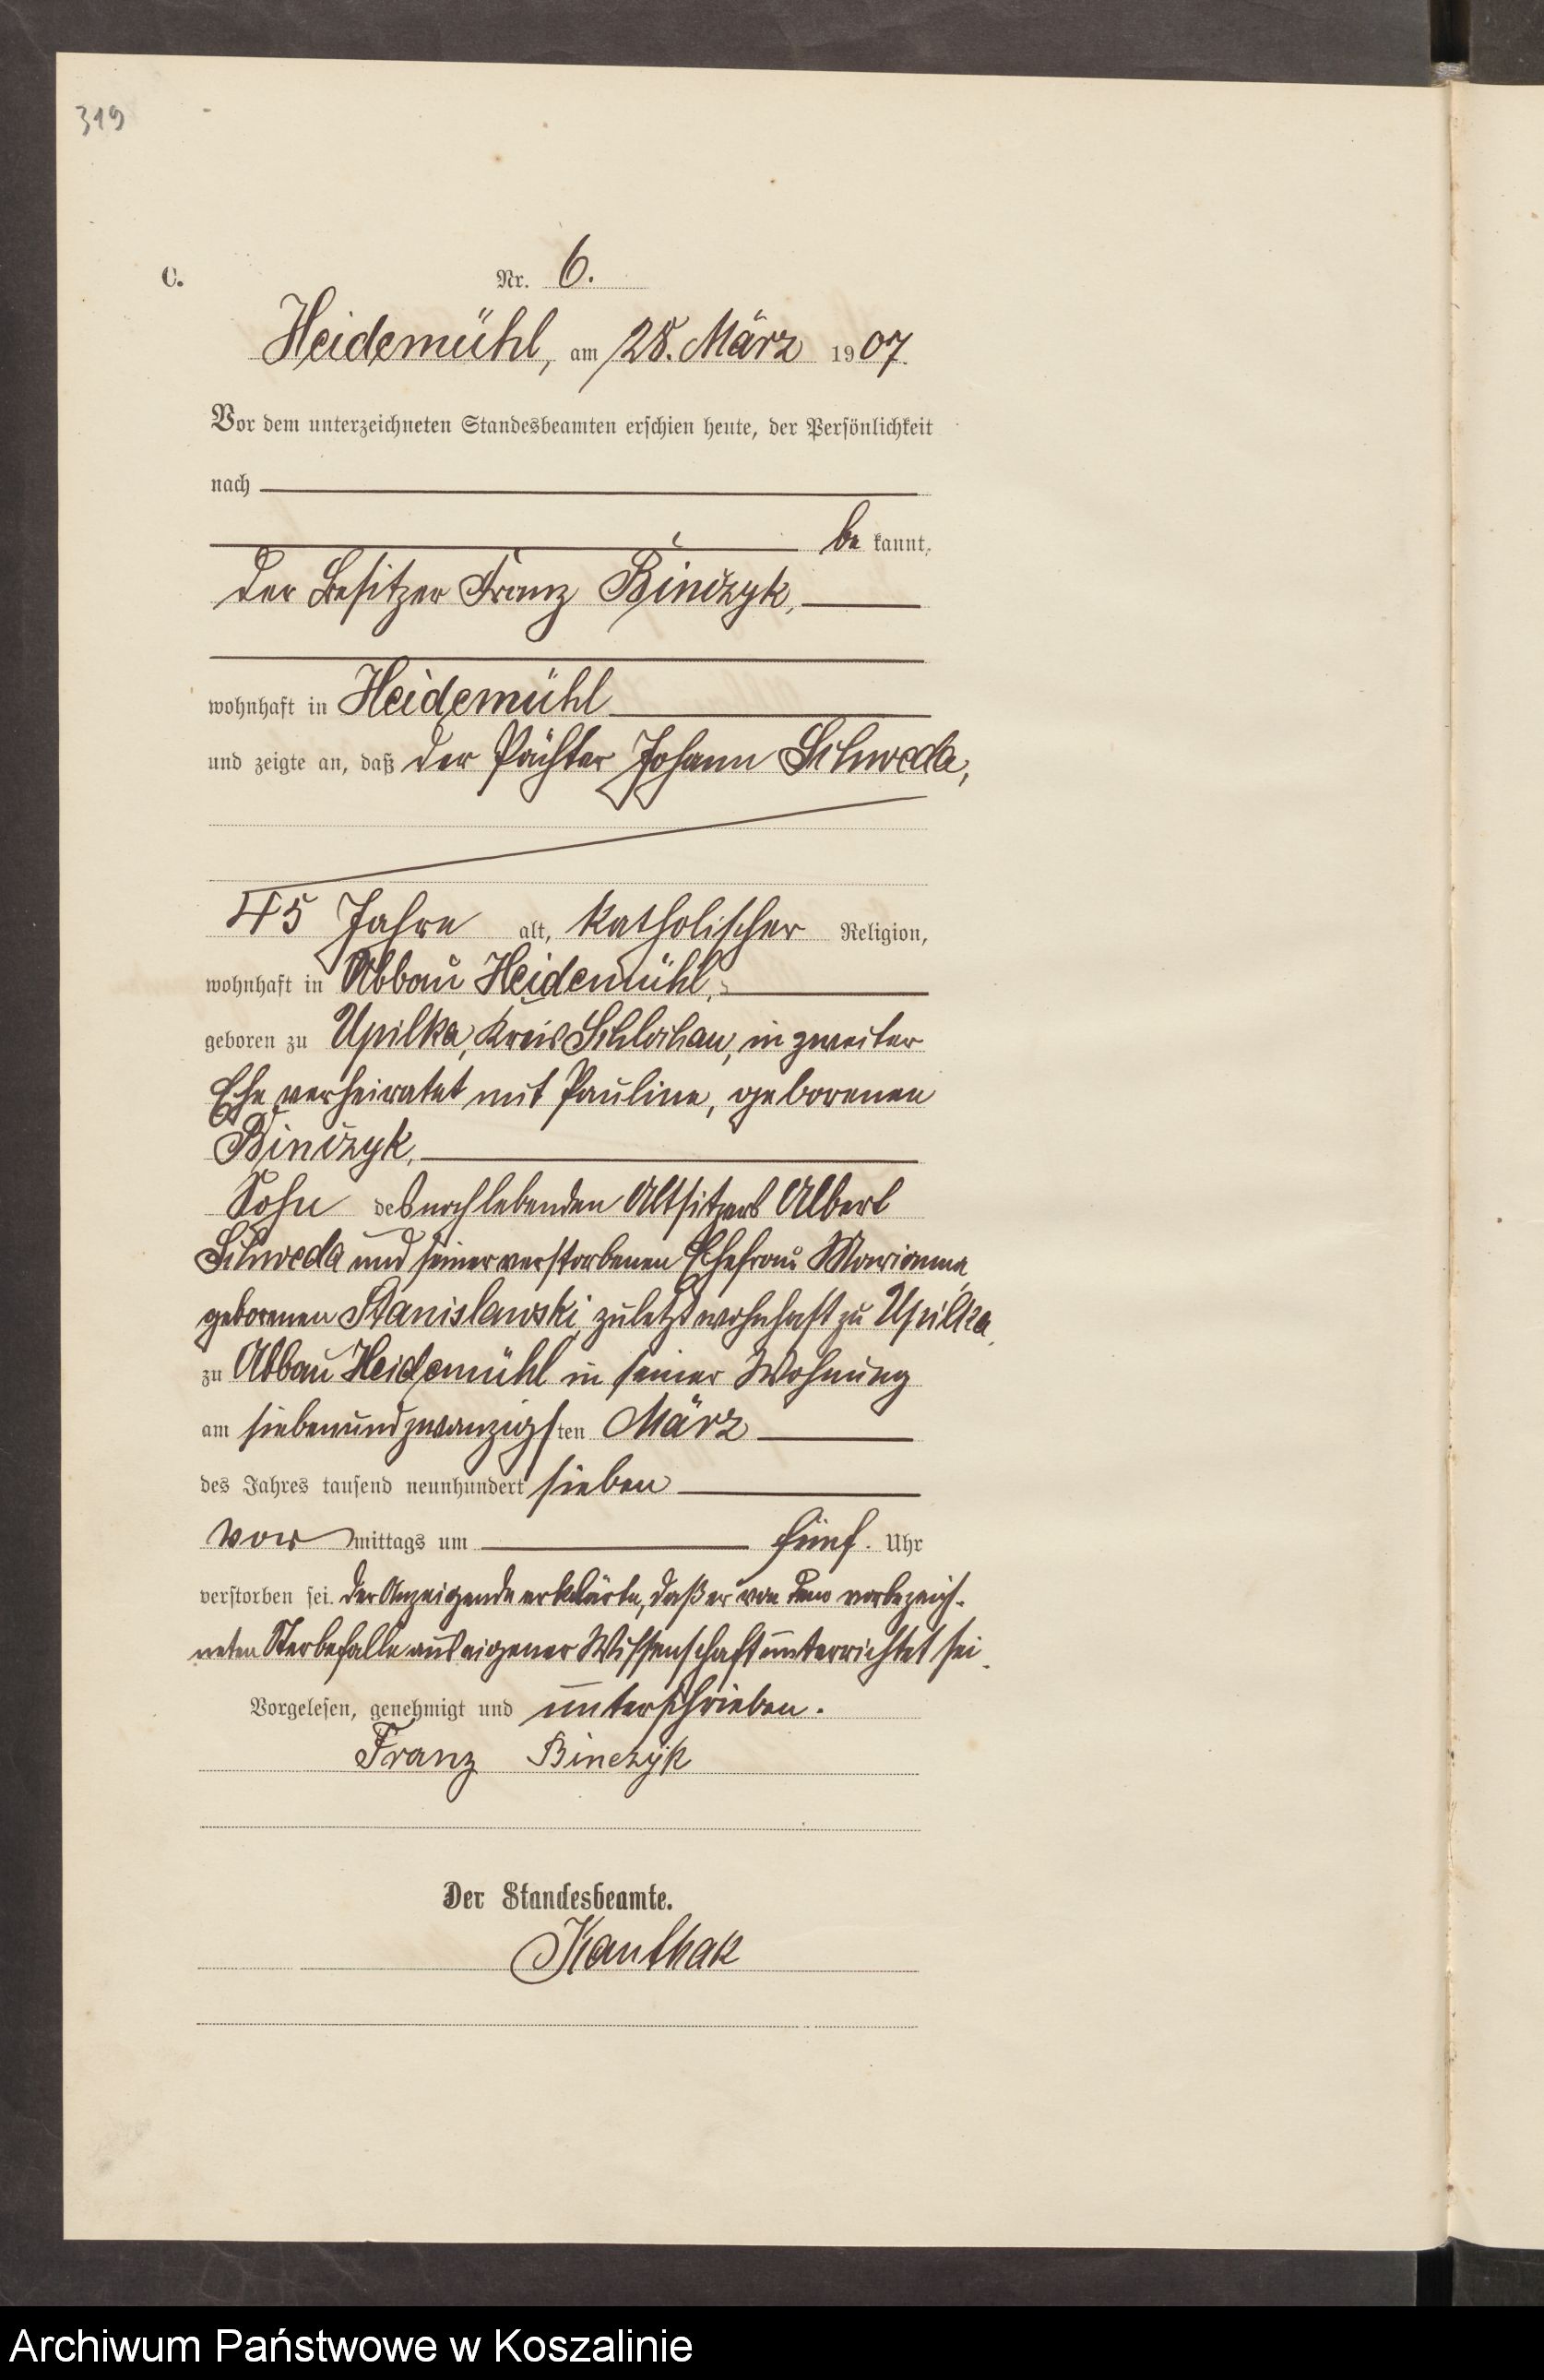 319
C.
Nr. 6.
Heidemühl, am 28. März 1907.
Vor dem unterzeichneten Standesbeamten erschien heute, der Persönlichkeit
nach
be kannt,
der Besitzer Franz Binczyk,
wohnhaft in Heidemühl
und zeigte an, daß der Pächter Johann Schweda,
45 Jahre alt, katholischer Religion,
wohnhaft in Abbau Heidemühl,
geboren zu Upilka, Kreis Schlochau, in zweiter
Ehe verheiratet mit Pauline, geborenen
Binczyk,
Sohn des noch lebenden Altsitzers Albert
Schweda und seiner verstorbenen Ehefrau Marianna,
geborenen Stanislawski, zuletzt wohnhaft zu Upilka,
zu Abbau Heidemühl in seiner Wohnung
am siebenundzwanzigsten März
des Jahres tausend neunhundert sieben
vor mittags um fünf Uhr
verstorben sei. Der Anzeigende erklärte, daß er von dem vorbezeich-
neten Sterbefalle aus eigener Wissenschaft unterrichtet sei.
Vorgelesen, genehmigt und unterschrieben.
Franz Binczyk
Der Standesbeamte.
Kanthak
Archiwum Państwowe w Koszalinie